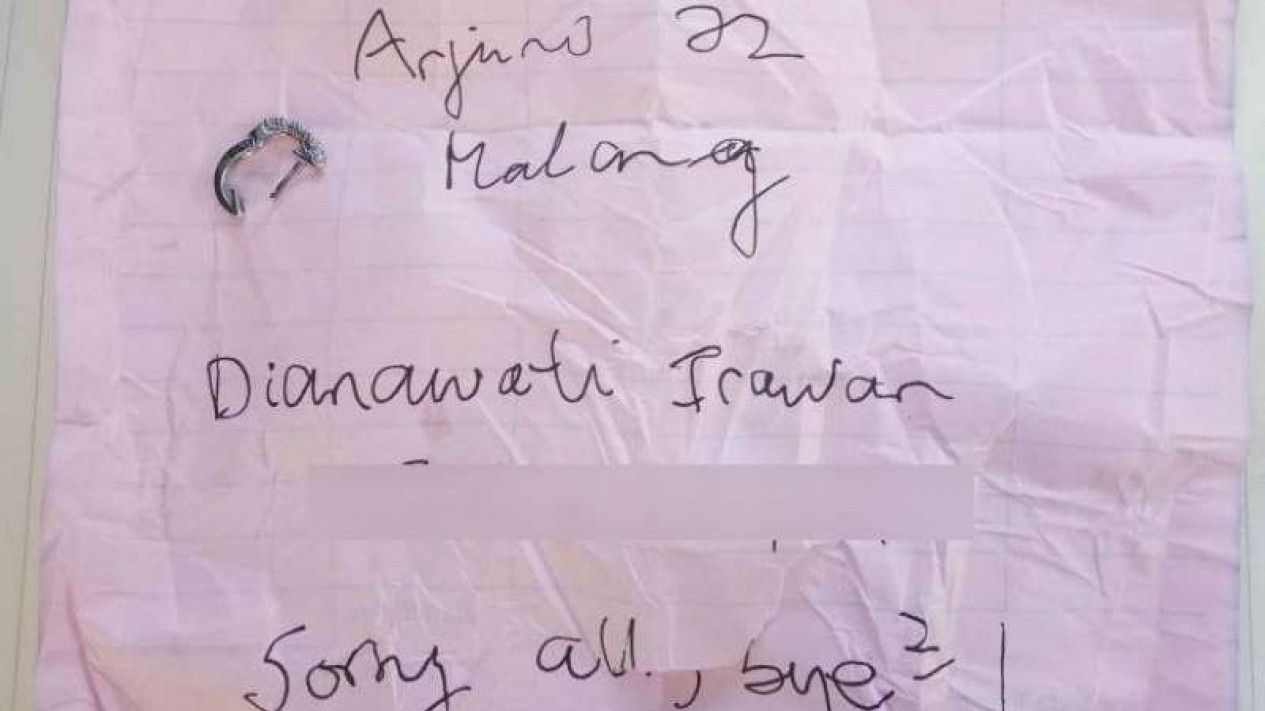 Arjuno 22
Malang
Dianawati Irawan
Sorry all, bye² !